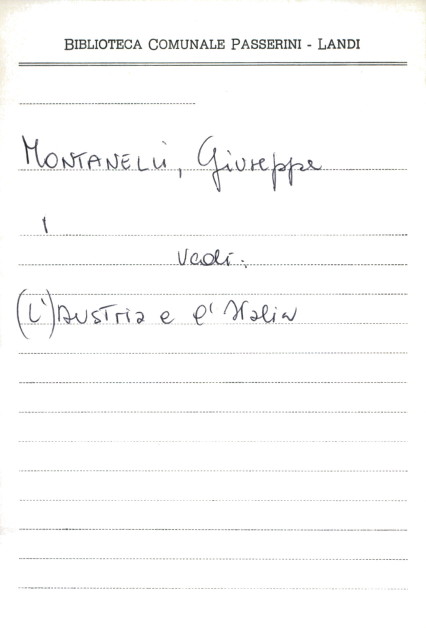 BIBLIOTECA COMUNALE PASSERINI - LANDI
MONTANELLI, Giuseppe
1
Vedi:
(L')Austria e l'Italia